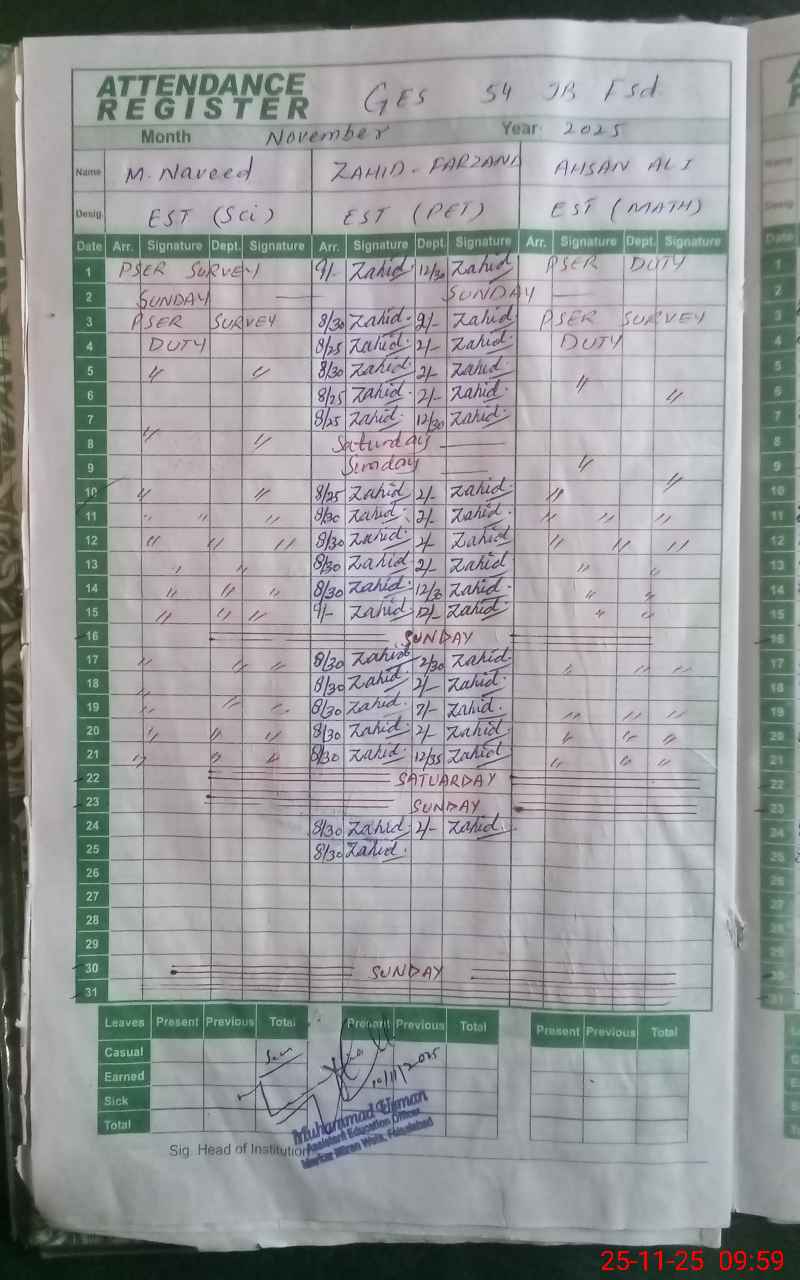 ATTENDANCE REGISTER GES 54 JB Fsd
Month November Year 2025
Name M. Naveed ZAHID-FARZAND AHSAN ALI
Desig. EST (Sci) EST (PET) EST (MATH)
Date Arr. Signature Dept. Signature Arr. Signature Dept. Signature Arr. Signature Dept. Signature
1 PSER SURVEY 9/- Zahid. 12/30 Zahid PSER DUTY
2 SUNDAY — SUNDAY —
3 PSER SURVEY 8/30 Zahid. 2/- Zahid PSER SURVEY
4 DUTY 8/25 Zahid. 2/- Zahid. DUTY
5 " " 8/30 Zahid. 2/- Zahid.
6 8/25 Zahid. 2/- Zahid. " "
7 8/25 Zahid. 12/30 Zahid.
8 " " Saturday —
9 Sunday — "
10 " " 8/25 Zahid 2/- Zahid. " "
11 " " " 8/30 Zahid. 2/- Zahid. " " "
12 " " " 8/30 Zahid. 2/- Zahid " " "
13 " " 8/30 Zahid 2/- Zahid " "
14 " " " 8/30 Zahid. 12/30 Zahid. " "
15 " " " 9/- Zahid 12/- Zahid. " "
16 SUNDAY
17 " " " 8/30 Zahid 2/30 Zahid " " "
18 " 8/30 Zahid 2/- Zahid.
19 " " " 8/30 Zahid. 2/- Zahid. " " "
20 " " " 8/30 Zahid. 2/- Zahid. " " "
21 " " " 8/30 Zahid. 12/35 Zahid " " "
22 SATUARDAY
23 SUNDAY
24 8/30 Zahid 2/- Zahid.
25 8/30 Zahid.
26
27
28
29
30 SUNDAY
31
Leaves Present Previous Total Present Previous Total Present Previous Total
Casual
Earned
Sick
Total
10/11/2025
Muhammad Usman
Assistant Education Officer
Sig. Head of Institution
Faisalabad
25-11-25 09:59